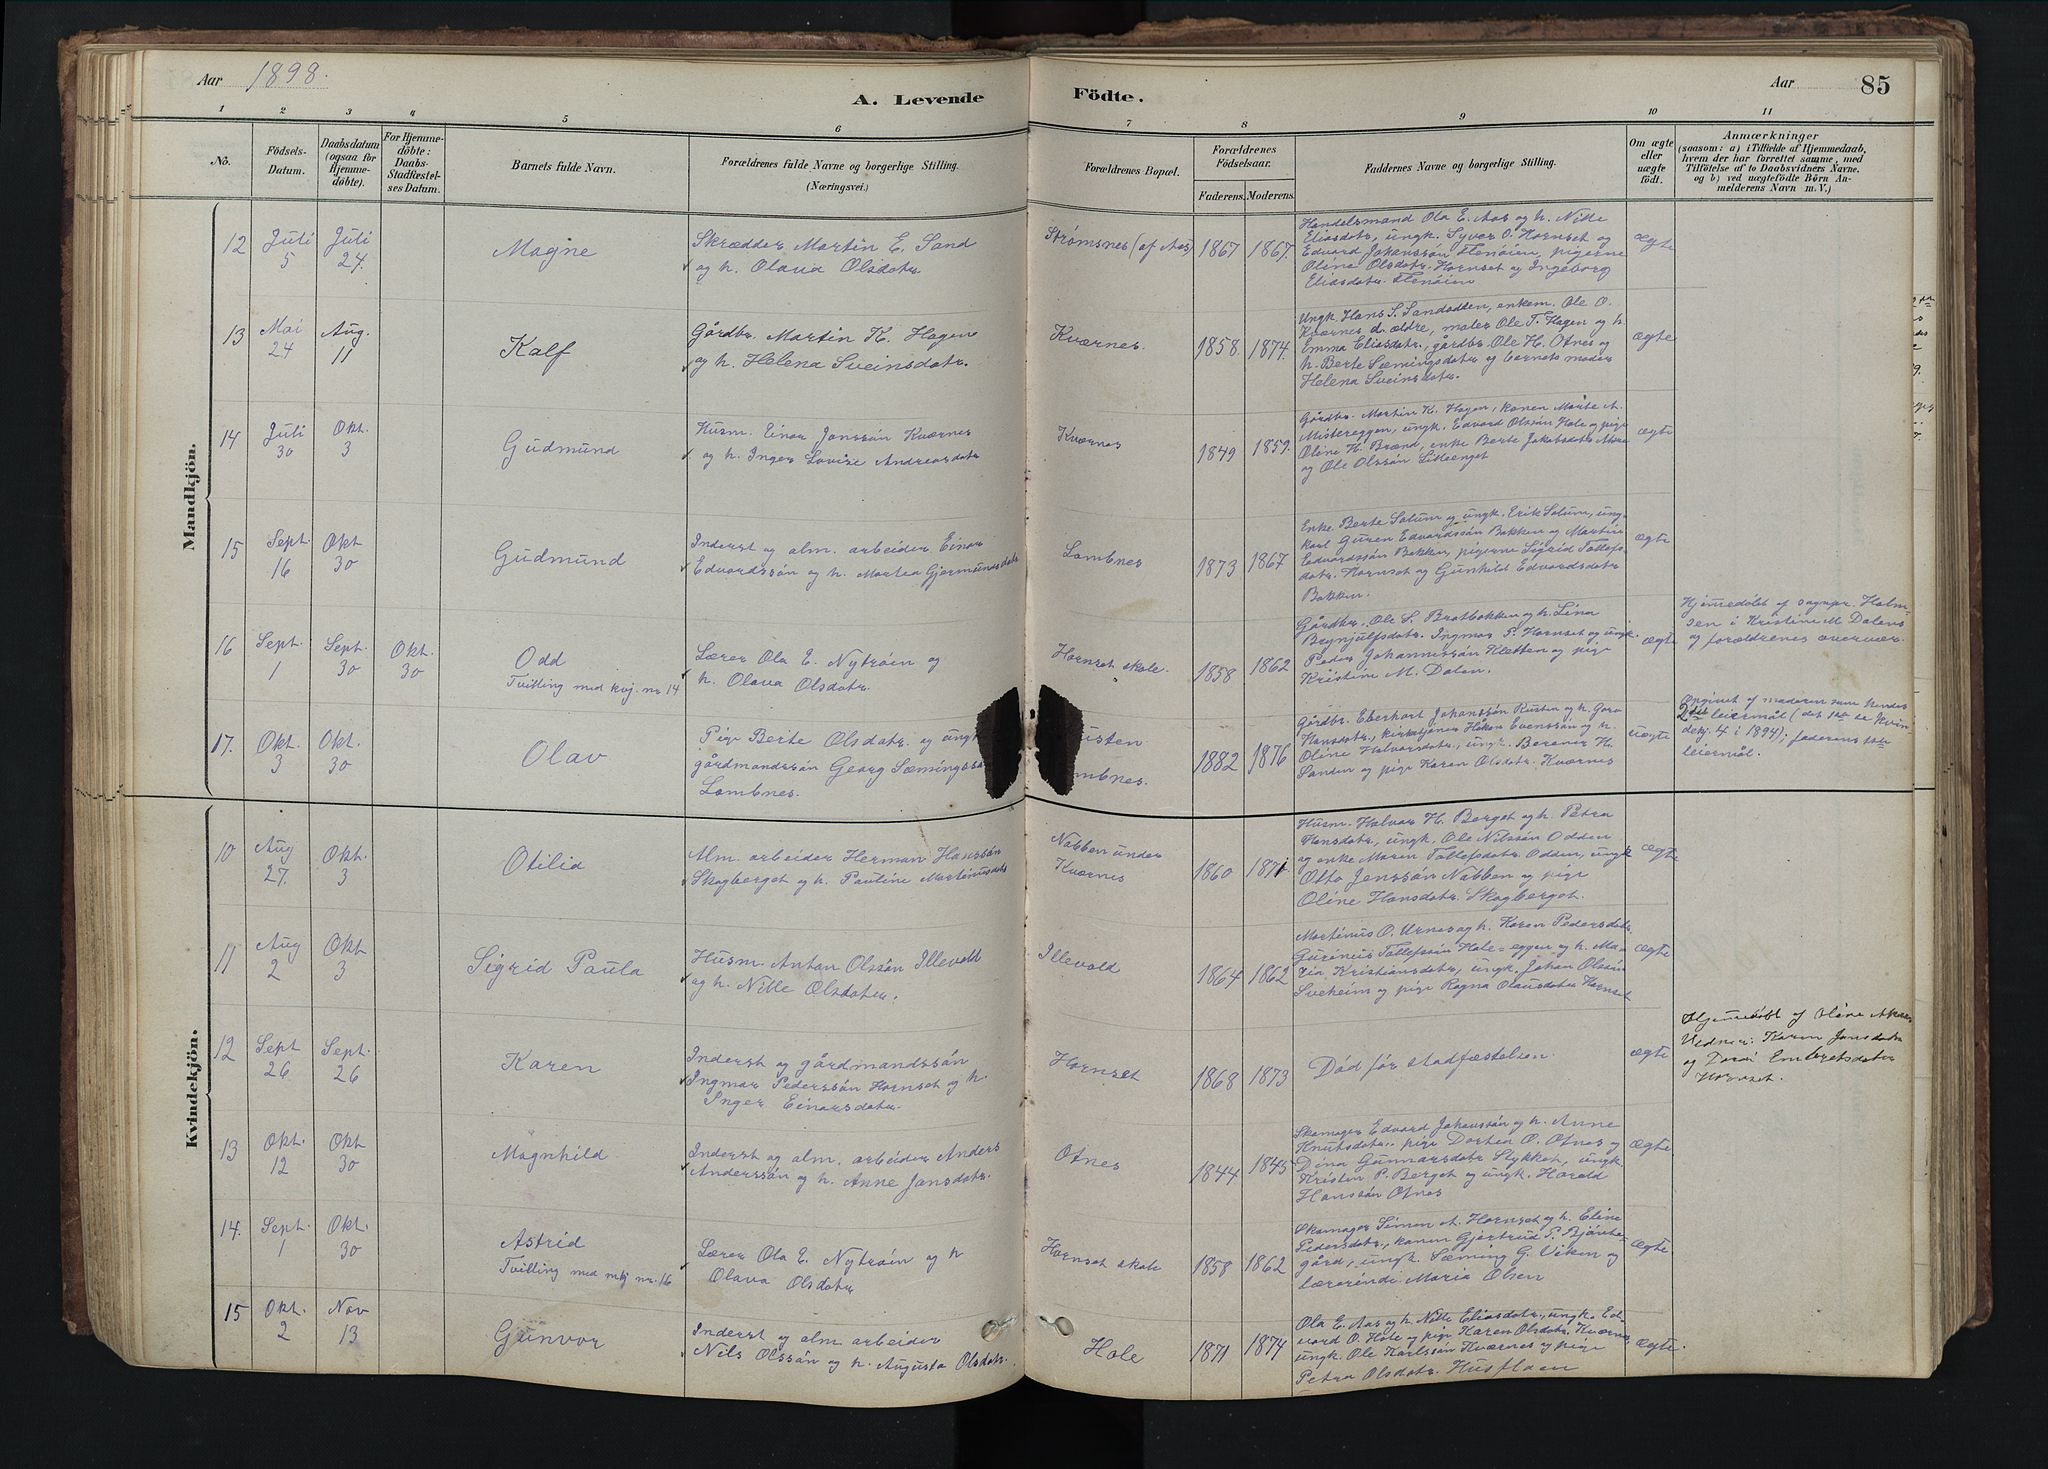 Aar 1898.
A. Levende Födte.
Aar 85
1 2 3 4 5 6 7 8 9 10 11
No.
Födsels-
Datum.
Daabsdatum
(ogsaa for
Hjemme-
döbte).
For Hjemme-
döbte:
Daabs-
Stadfæstel-
ses Datum.
Barnets fulde Navn.
Forældrenes fulde Navne og borgerlige Stilling.
(Næringsvei.)
Forældrenes Bopæl.
Forældrenes
Födselsaar.
Faderens. Moderens.
Faddernes Navne og borgerlige Stilling.
Om ægte
eller
uægte
födt.
Anmærkninger
(saasom: a) i Tilfælde af Hjemmedaab,
hvem der har forrettet samme, med
Tilföielse af to Daabsvidners Navne,
og b) ved uægtefödte Börn An-
melderens Navn m. V.)
Mandkjön.
12
Juli
5
Juli
24.
Magne
Skrædder Martin E. Sand
og h. Olava Olsdatr
Strømsnes (af Aas)
1867 1867.
Handelsmand Ola E. Aas og h. Nille
Eliasdatr, ungk. Syver O. Hornset og
Edvard Johanssön Flenöien, pigerne
Oline Olsdatr. Hornset og Ingeborg
Eliasdatr. Flenöien
ægte
13
Mai
24
Aug.
11
Kalf
Gårdbr. Martin K. Hagen
og h. Helena Sveinsdatr.
Kværnes.
1858. 1874.
Ungk. Hans S. Sandodden, enkem. Ole O.
Kværnes d. ældre, maler Ole T. Hagen og h.
Emma Eliasdatr., gårdbr. Ole H. Otnes og
h. Berte Sæmingsdatr og barnets moder
Helena Sveinsdatr.
ægte
14
Juli
30
Okt.
3
Gudmund
Husm. Einar Jonssön Kværnes
og h. Inger Lovise Andreasdatr
Kværnes
1849 1859.
Gårdbr. Martin K. Hagen, konen Marte A.
Mistereggen, ungk. Edvard Olssön Hole og pige
Oline H. Brænd, enke Berte Jakobsdatr
og Ole Olssön Lilleenget
ægte
15
Sept.
16
Okt
30
Gudmund
Inderst og alm. arbeider Einar
Edvardssön og h. Martea Gjermundsdatr
Lombnes
1873 1867
Enke Berte Solum og ungk. Erik Solum, ung-
karl Guren Edvardssön Bakken og Martin
Edvardssön Bakken, pigerne Sigrid Tollefs-
datr. Hornset og Gunhild Edvardsdatr
Bakken.
ægte
16
Sept.
1
Sept.
30
Okt.
30
Odd
Tvilling med kvj. nr. 14
Lærer Ola E. Nytröen og
h. Olava Olsdatr.
Hornset skole.
1858 1862
Gårdbr. Ole S. Bratbakken og h. Lina
Brynjulfsdatr. Ingmar P. Hornset og ungk.
Peder Johannessön Kletten og pige
Kristine M. Dalen.
ægte
Hjemedöbt af sognpr. Holm-
sen i Kristine M. Dalens
og forældrenes overvær.
17.
Okt.
3
Okt.
30
Olav
Pige Berte Olsdatr. og ungk.
gårdmandssön Georg Sæmingssön
Lombnes.
1882 1876
Gårdbr. Eberhart Johanssön Rusten og h. Goro
Hansdatr., kirketjener Håkon Evenssön og h.
Oline Halvorsdatr., ungk. Berner H.
Sanden og pige Karen Olsdatr. Kværnes
uægte
Angivet af moderen som hendes
2det leiermål (det 1ste se kvin-
dekj. 4 i 1894); faderens 1ste
leiermål.
Kvindekjön.
10
Aug
27.
Okt.
3
Otilia
Alm. arbeider Herman Hanssön
Skogberget og h. Pauline Martinusdatr
Nabben under
Kværnes
1860 1871
Husm. Halvor H. Berget og h. Petra
Hansdatr., ungk. Ole Nilssön Odden
og enke Maren Tollefsdatr. Odden, ungk
Otto Jenssön Nabben og pige
Oline Hansdatr. Skogberget.
ægte
11
Aug
2
Okt
3
Sigrid Paula
Husm. Anton Olssön Illevold
og h. Nille Olsdatr.
Illevold
1864 1862
Martinus O. Urnes og h. Karen Pedersdatr.
Gurenius Tollefssön Hole-eggen og h. Ma-
ria Kristiansdatr, ungk. Johan Olssön
Sveheim og pige Ragna Olausdatr Hornset
ægte
12
Sept
26
Sept.
26
Karen
Inderst og gårdmandssön
Ingmar Pederssön Hornset og h.
Inger Einarsdatr.
Hornset
1868 1873
Död för stadfæstelsen.
ægte
Hjemmedöbt af Oline
Vidner: Karen Jonsdatr
og Embretsdatr
Hornset.
13
Okt.
12
Okt
30
Magnhild
Inderst og alm. arbeider Anders
Anderssön og h. Anne Jonsdatr.
Otnes
1844 1845
Skomager Edvard Johanssön og h. Anne
Knutsdatr. pige Dortea O. Otnes og
Dina Gunnarsdatr Stykket, ungk.
Kristen P. Berget og ungk. Harald
Hanssön Otnes
ægte
14.
Sept.
1
Okt.
30
Astrid
Tvilling med mkj nr. 16
Lærer Ola E. Nytröen og h
Olava Olsdatr
Hornset skole
1858 1862
Skomager Simen A. Hornset og h. Eline
Pedersdatr., konen Gjertrud P.
gård, ungk. Sæming G. Viken og
lærerinde Maria Olsen
ægte
15
Okt.
2
Nov
13
Gunvor
Inderst og alm arbeider
Nils Olssön og h. Augusta Olsdatr.
Hole
1871 1874
Ola E. Aas og h. Nille Eliasdatr., ungk. Ed-
vard O. Hole og pige Karen Olsdatr. Kværnes,
ungk. Ole Karlssön Kværnes og pige
Petra Olsdatr. Husfloen
ægte.